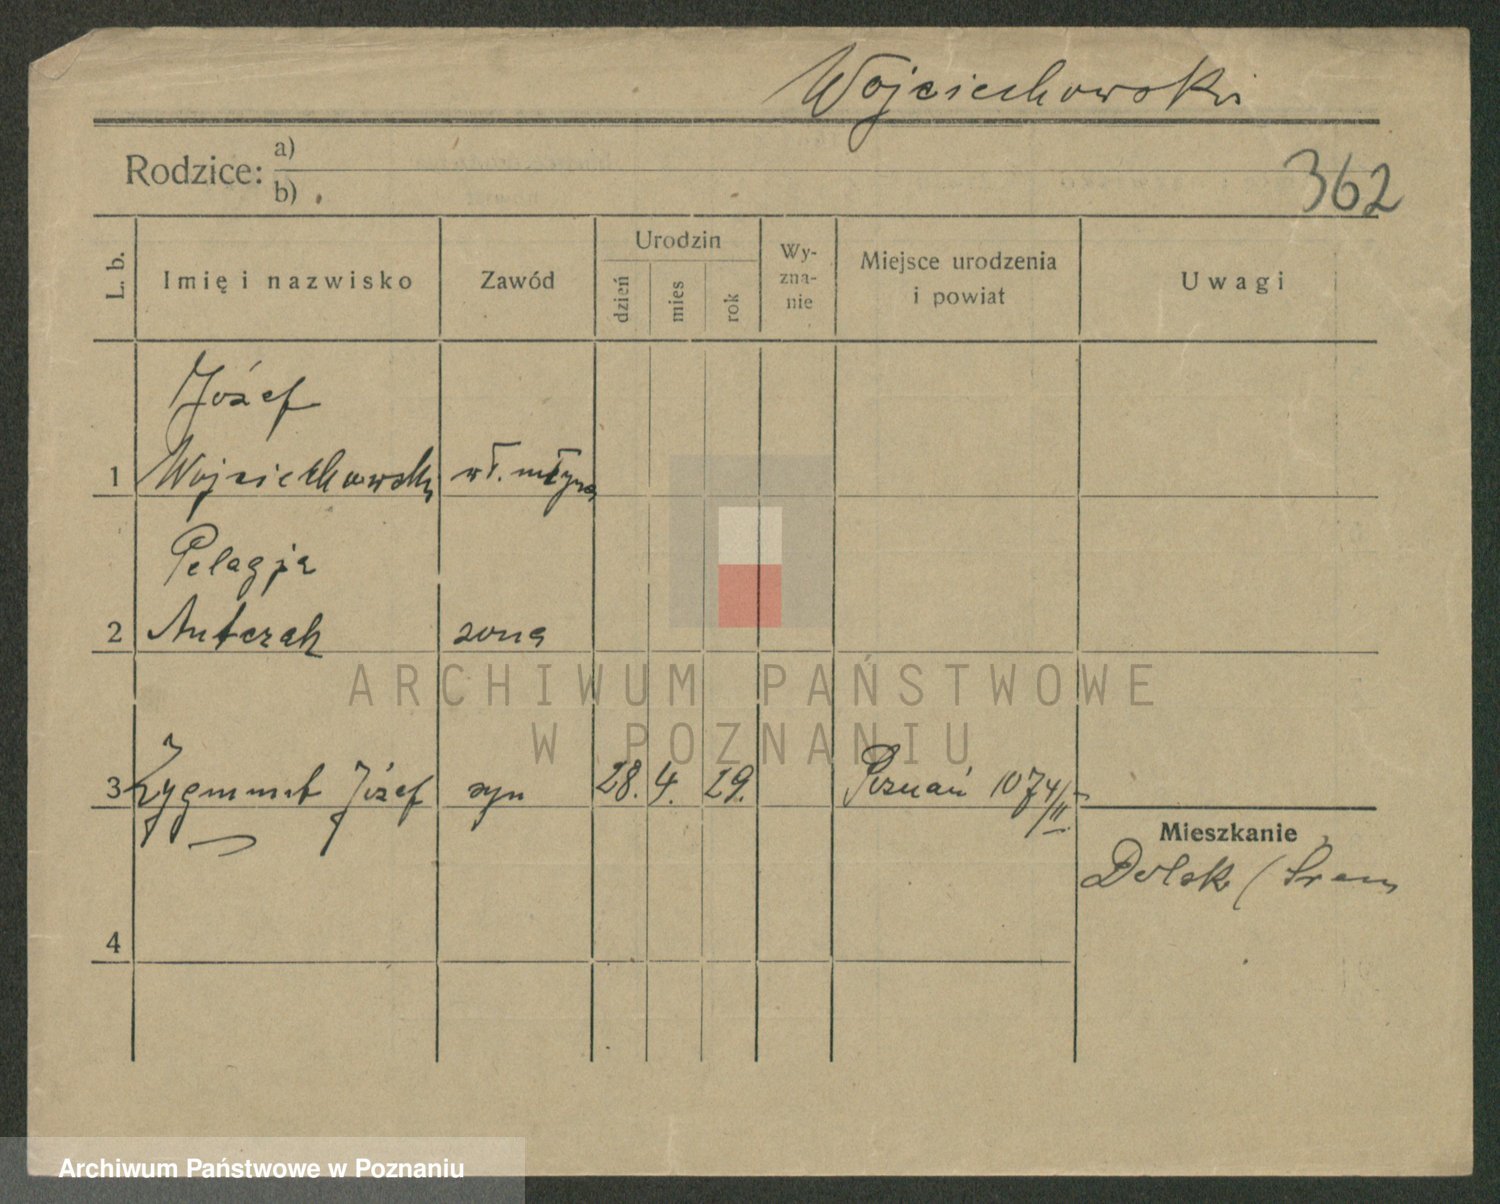 Wojciechowski
Rodzice: a)
b)
362
L. b.
Imię i nazwisko
Zawód
Urodzin
dzień
mies
rok
Wy-
zna-
nie
Miejsce urodzenia
i powiat
Uwagi
Józef
1 Wojciechowski wł. młyna
Pelagja
2 Antczak żona
3 Zygmunt Józef syn 28. 4. 29. Poznań 1074/II.
Mieszkanie
Dolsk / Śrem
4
ARCHIWUM PAŃSTWOWE
W POZNANIU
Archiwum Państwowe w Poznaniu